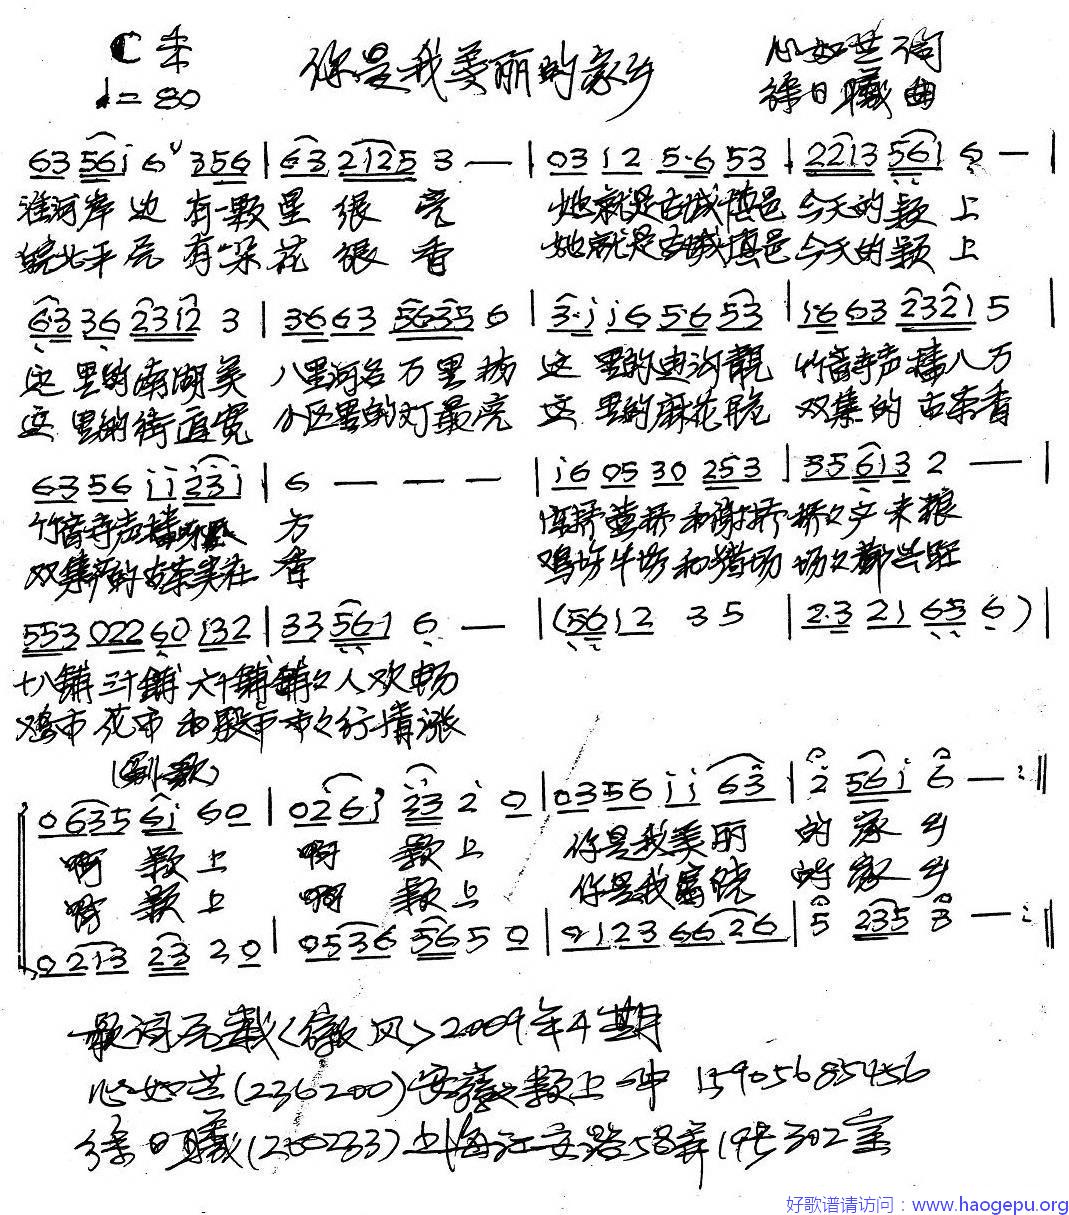 C 李
♩=80
你是我美丽的家乡
心如芸 词
徐日曦 曲
63 561̇ 6 ˅ 356 | 63 2125 3 — | 03 12 5·6 53 | 2213 561 6 — |
淮河岸边 有一颗星 很 亮 她就是古城慎邑 今天的颍上
皖北平原 有一朵花 很 香 她就是古城慎邑 今天的颍上
6·3 36 2312 3 | 3·6 63 5635 6 | 3·1̇ 1̇6 5·6 53 | 1̇·6 63 2321 5 |
这 里的南湖美 八里河名万里扬 这 里的迪沟靓 竹音寺声播八方
这 里的街道宽 小区里的灯最亮 这 里的麻花脆 双集的 古茶香
63 56 1̇1̇ 2̇3̇1̇ | 6 — — — | 1̇6 05 30 253 | 35 613 2 — |
竹音寺声播 方 桥和谢桥 桥々产米粮
双集的古茶实在 香 鸡场牛场和猪场 场々都兴旺
553 022 60 132 | 33 561 6 — | (5612 3 5 | 2·3 21 65 6 ) |
十八铺 三十铺 六十铺 铺々人欢畅
鸡市 花市 和 市 市々行情涨
(副歌)
0635 61̇ 60 | 026 1̇ 2̇3̇ 2̇ 0 | 0356 1̇1̇ 63̇ | 2̇ 561̇ 6 — :‖
啊 颍上 啊 颍上 你是我美丽 的 家 乡
啊 颍上 啊 颍上 你是我富饶 的 家 乡
0213 23 2 0 | 0536 56 5 0 | 0123 66 26 | 5 235 3 — :‖
歌词原载《徽风》2009年4期
心如芸(236200)安徽颍上一中 15905685456
徐日曦(200233)上海江安路58弄19号302室
好歌谱请访问：www.haogepu.org